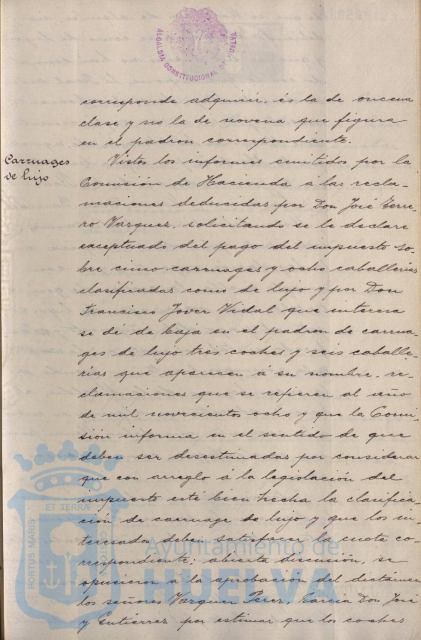 ALCALDÍA CONSTITUCIONAL DE HUELVA
corresponde adquirir, és la de oncena
clase y no la de novena que figura
en el padron correspondiente.
Carruages
de lujo
Vistos los informes emitidos por la
Comisión de Hacienda á las recla-
maciones deducidas por Don José Ferre-
ro Vazquez, solicitando se le declare
exceptuado del pago del impuesto so-
bre cinco carruages y ocho caballerias
clasificadas como de lujo y por Don
Francisco Jover Vidal que interesa
se dé de baja en el padron de carrua-
ges de lujo tres coches y seis caballe-
rias que aparecen á su nombre, re-
clamaciones que se refieren al año
de mil novecientos ocho y que la Comi-
sión informa en el sentido de que
deben ser desestimadas por considerar
que con arreglo á la legislación del
impuesto está bien hecha la clasifica-
ción de carruage de lujo y que los in-
teresados deben satisfacer la cuota co-
rrespondiente; abierta discusión, se
opusieron á la aprobación del dictamen
los señores Vazquez Perez, Garcia Don José
y Gutierrez por estimar que los coches
PORTUS MARIS
ET TERRAE
Ayuntamiento de
HUELVA